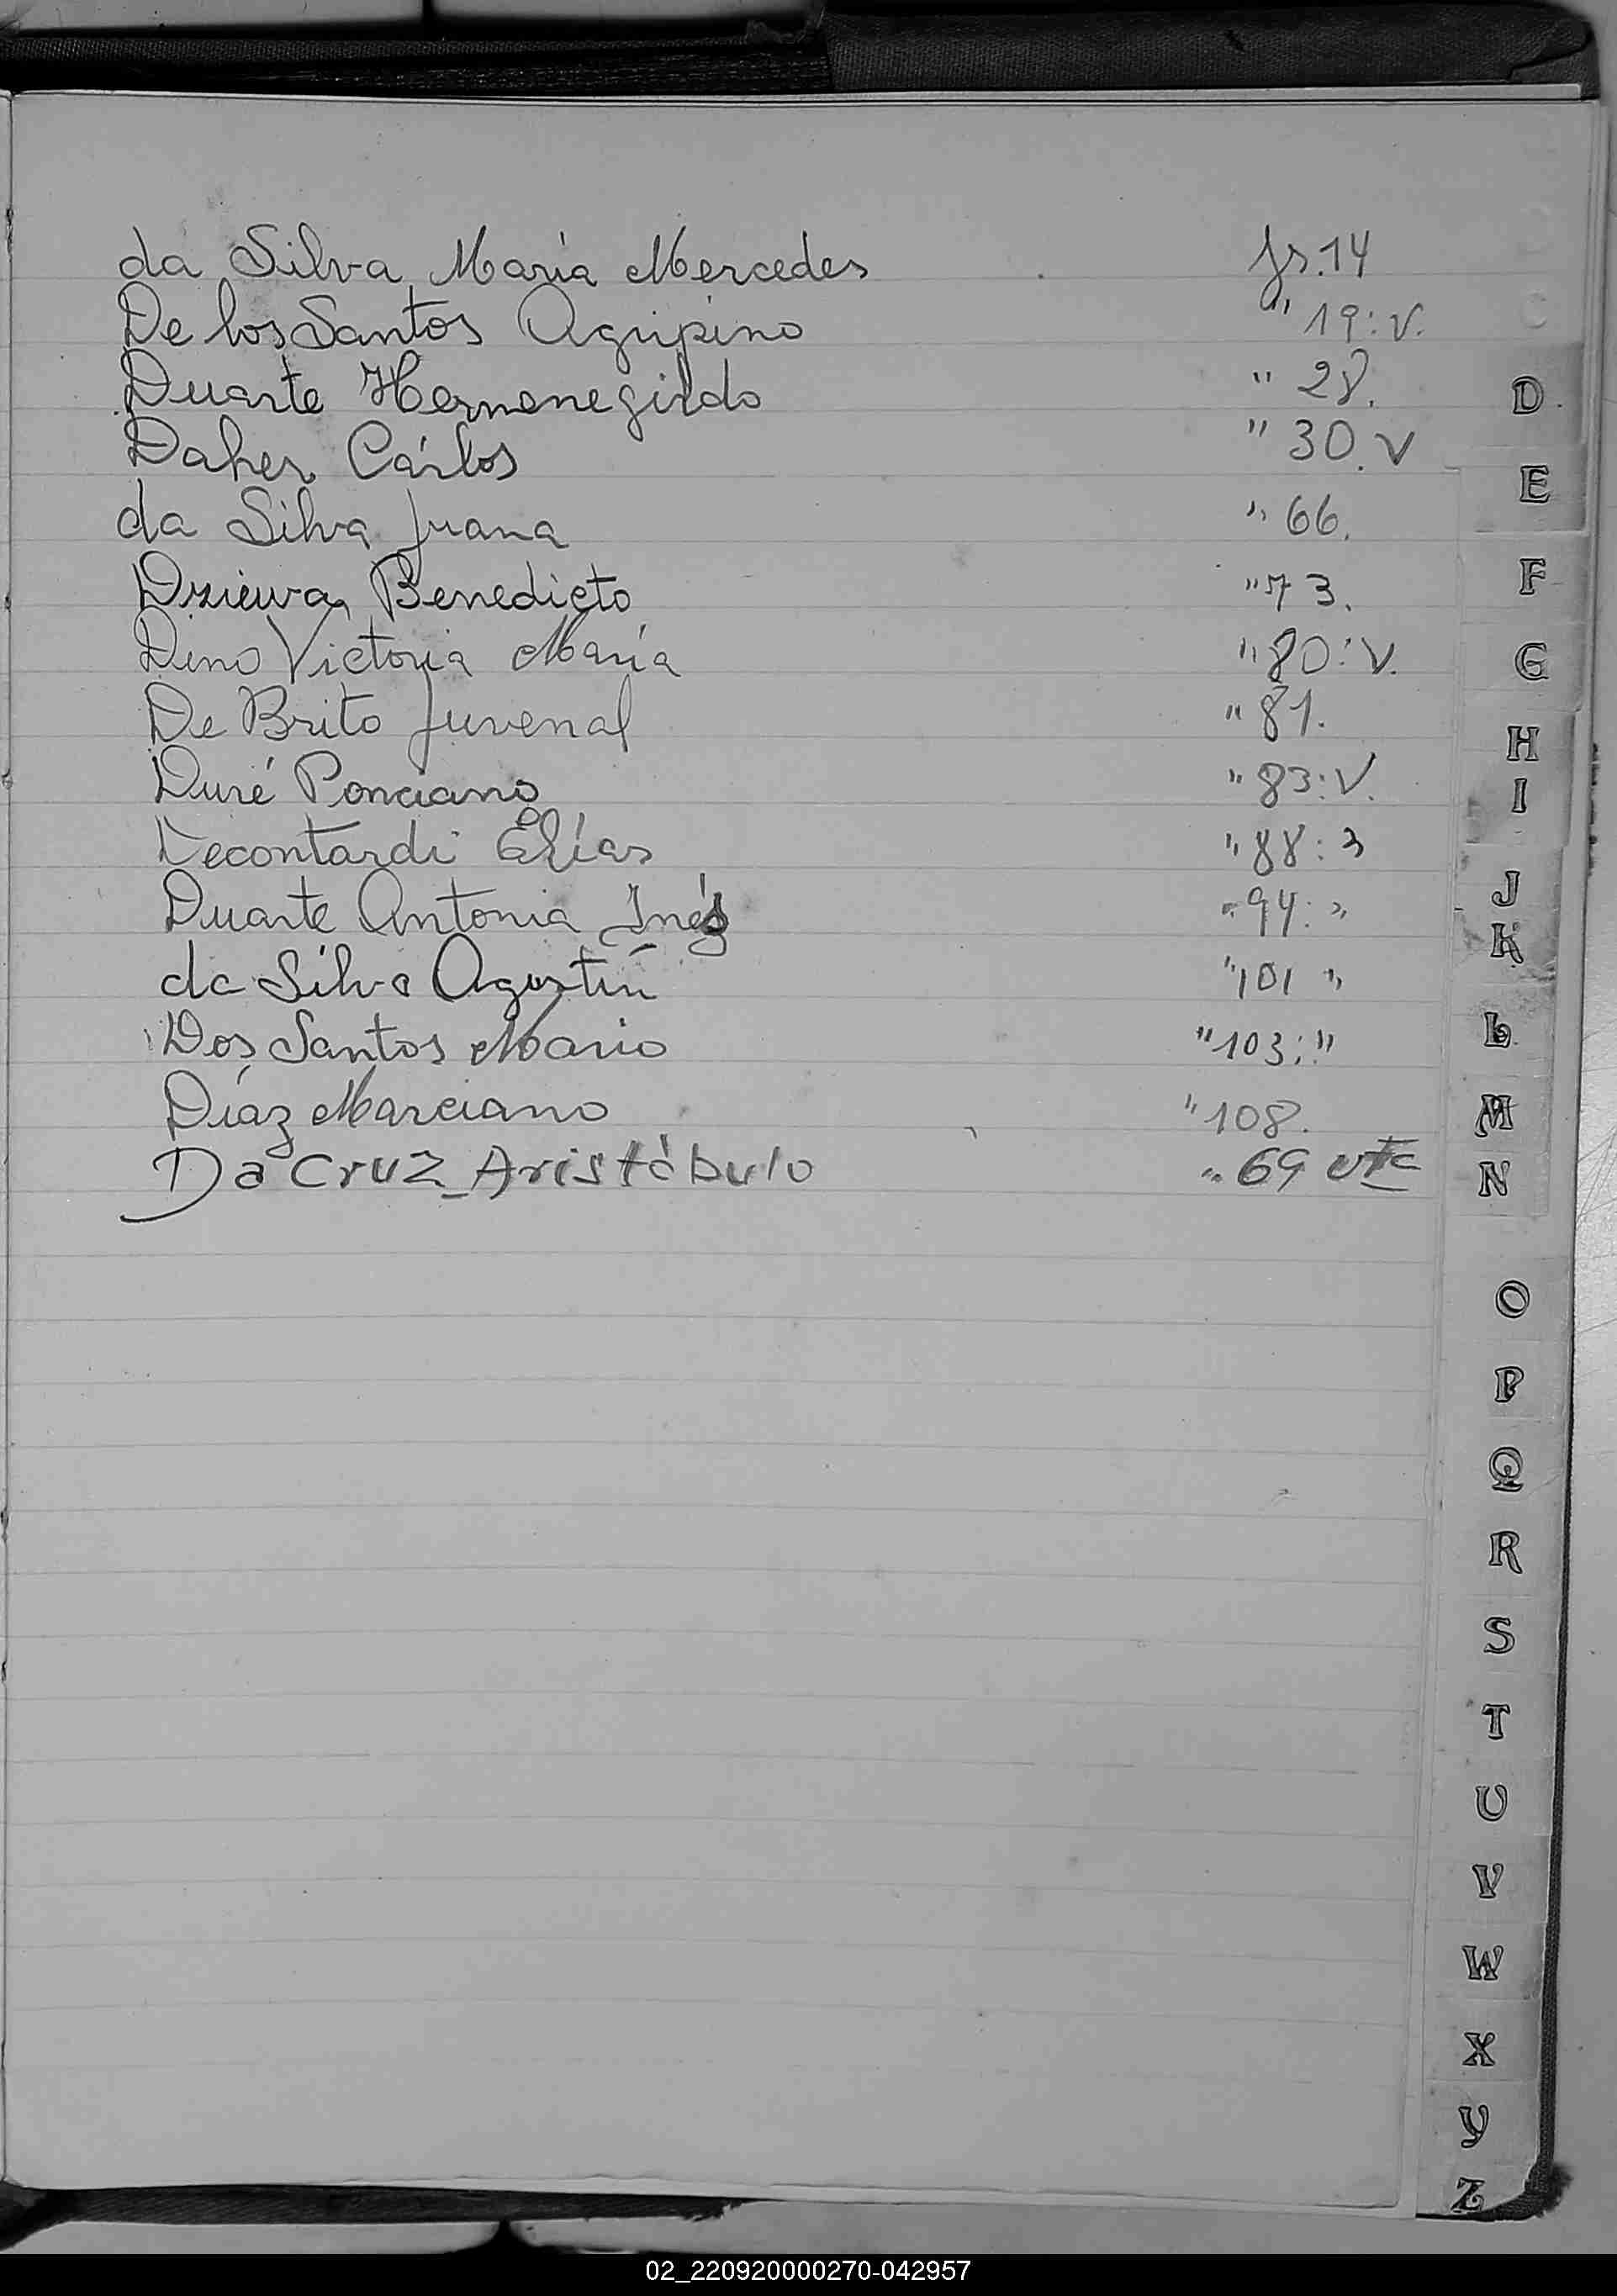 da Silva María Mercedes fs. 14
De los Santos Agripino " 19:v.
Duarte Hermenegildo " 28.
Daher Cárlos " 30.v
da Silva Juana " 66.
Dziewa, Benedicto " 73.
Dino Victoria María " 80:V.
De Brito Juvenal " 81.
Duré Ponciano " 83:V.
Decontardi Elías " 88: "
Duarte Antonia Inés " 94: "
da Silva Agustín " 101 "
Dos Santos Mario " 103: "
Díaz Marciano " 108.
Da Cruz_Aristóbulo " 69 vta
D
E
F
G
H
I
J
K
L
M
N
O
P
Q
R
S
T
U
V
W
X
Y
Z
02_220920000270-042957